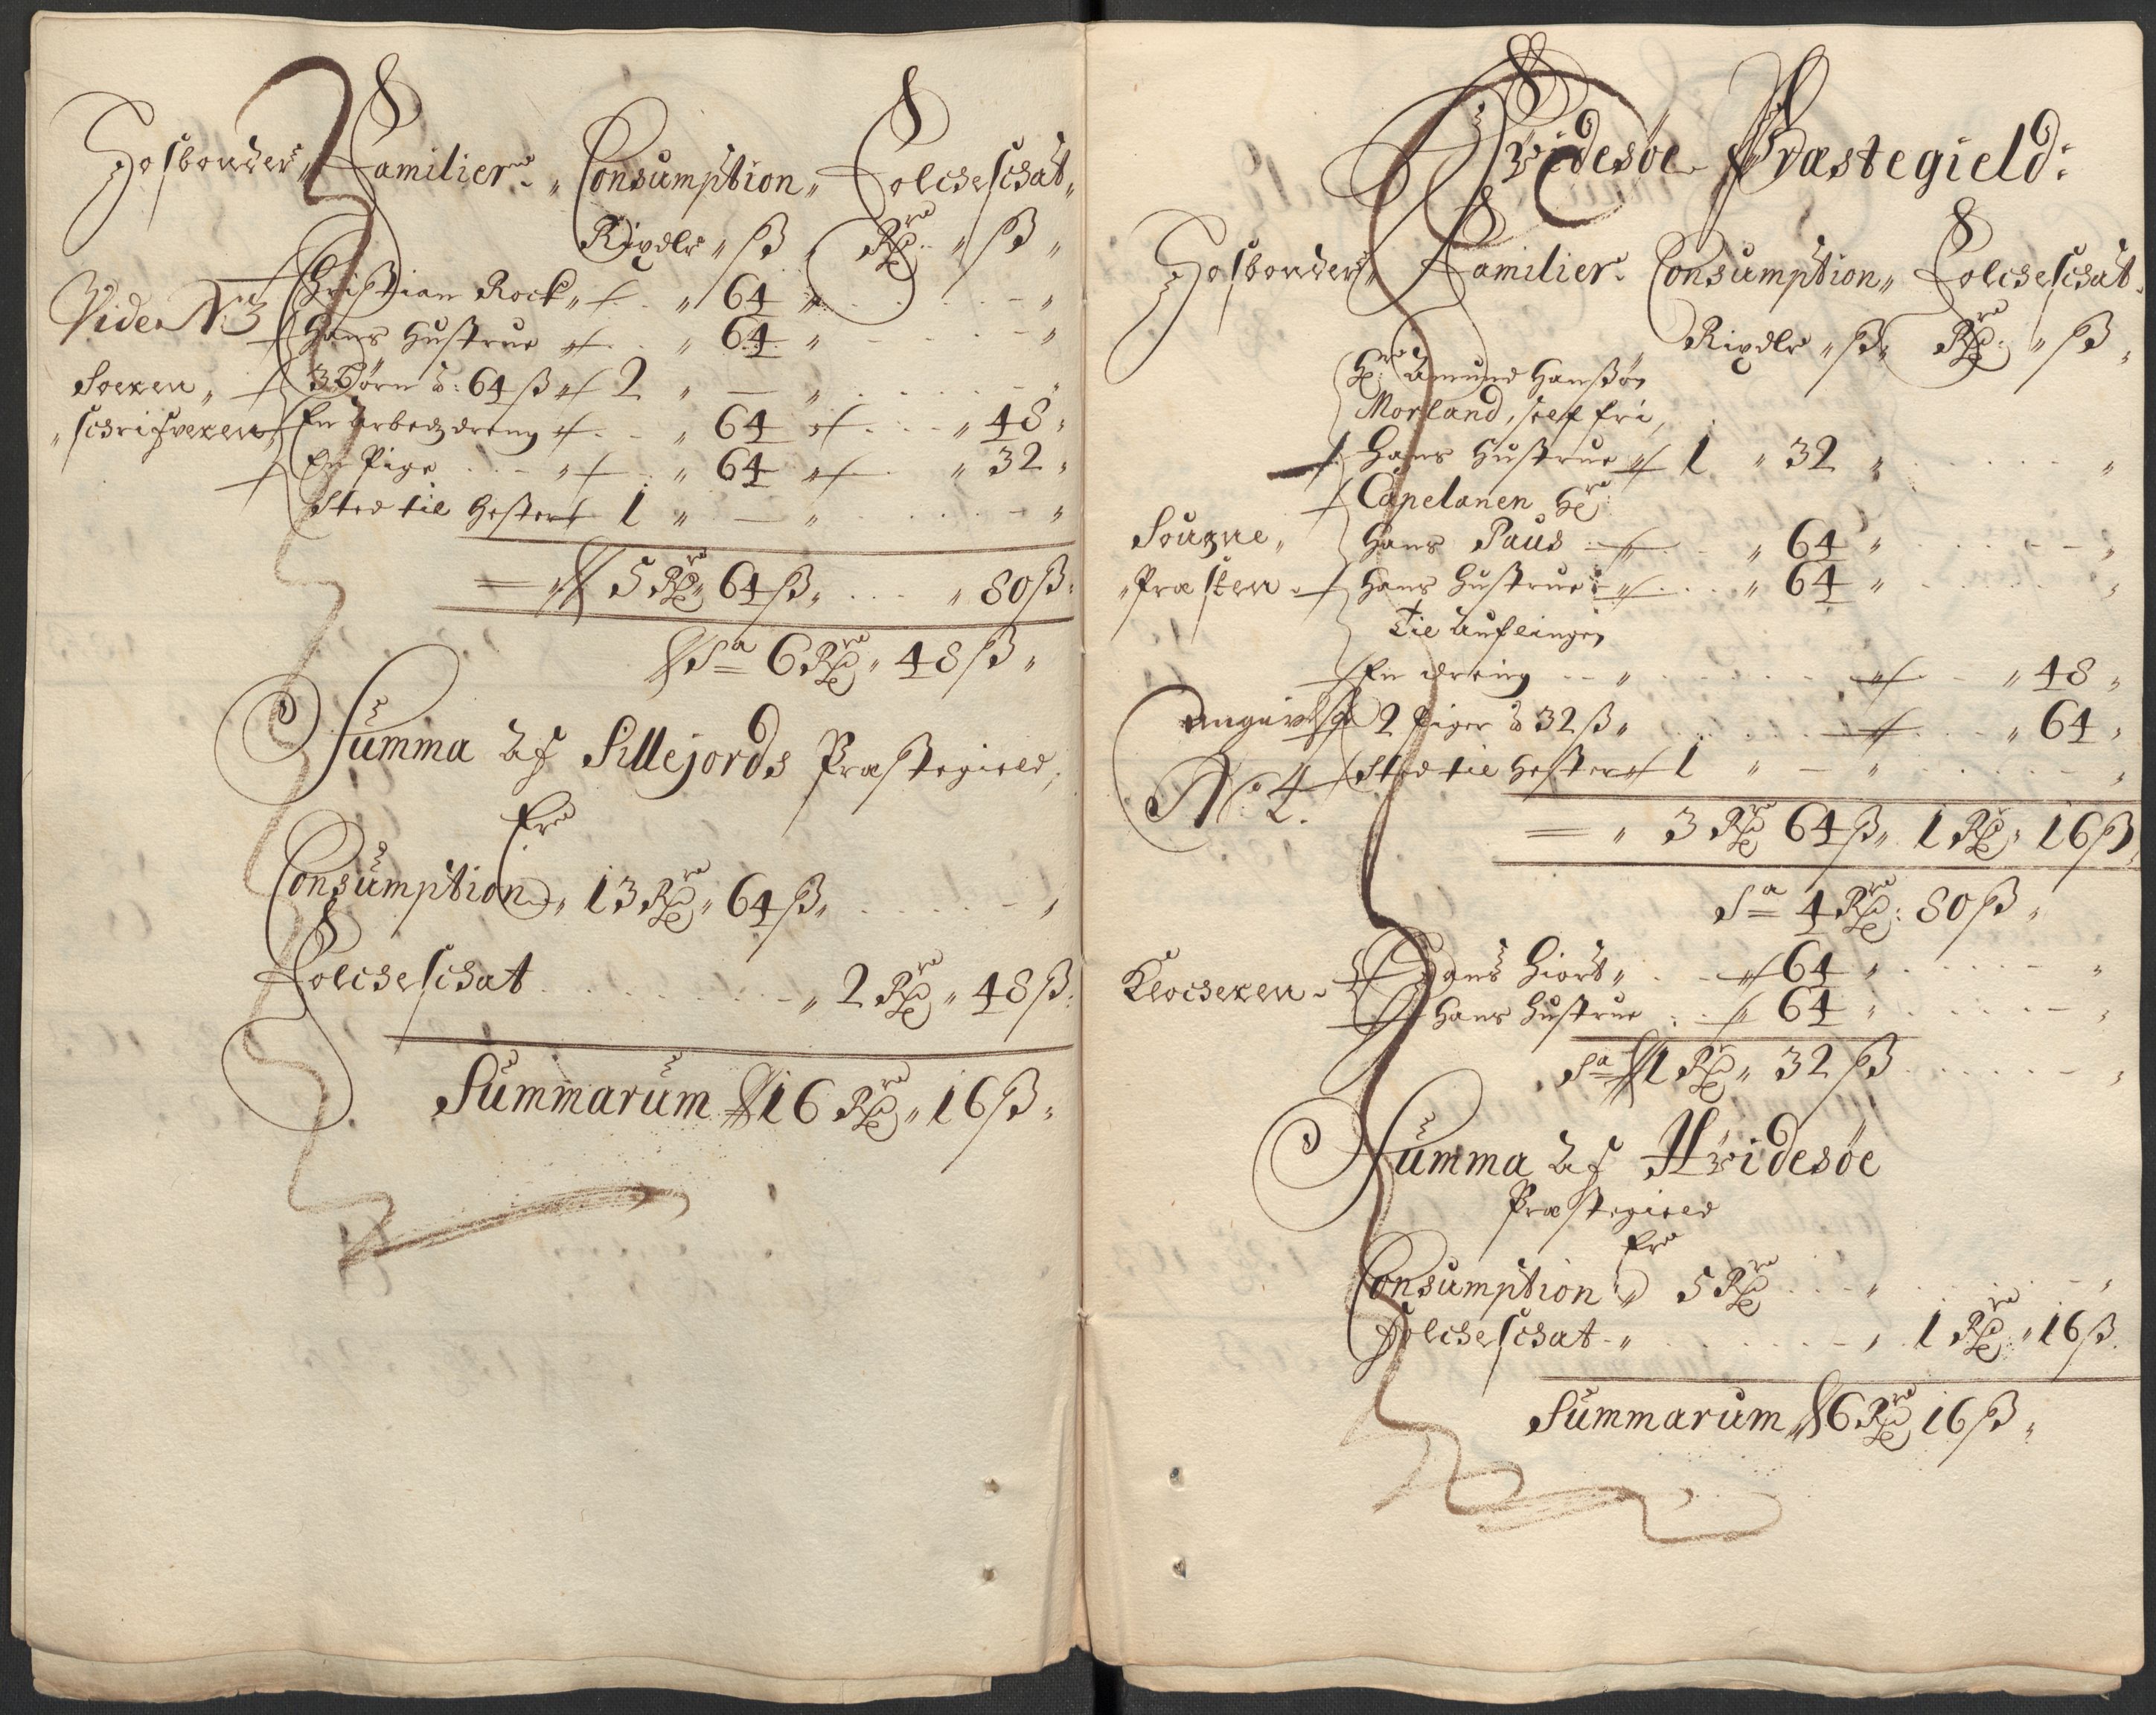 Hosbonder, Familier, Consumption, Folcheschat,
Rixdlr „ ß „ Rdr „ ß „
Vide No 3 Christian Rock „ 64 „
Hans Hustrue „ 64 „
Soren „ 3 Børn à: 64 ß 2 „ — „
schrifveren En Arbedzdreng „ 64 „ 48 „
En Pige „ 64 „ 32 „
Sted til Hester 1 „ — „
= 5 Rdr 64 ß „ 80 ß:
Sa 6 Rdr „ 48 ß „
Summa af Sillejords Præstegield,
Er
Consumption „ 13 Rdr „ 64 ß „
Folcheschat „ 2 Rdr „ 48 ß:
Summarum 16 Rdr „ 16 ß „
Hvidesøe Præstegield:
Hosbonder, Familier, Consumption „ Folcheschat
Rixdlr „ ß „ Rdr „ ß „
Hr Amund Hanssøn
Morland, self fri,
Hans Hustrue 1 „ 32 „
Capelanen Hr
Sougne „ Hans Paus „ 64 „
Præsten Hans Hustrue „ 64 „
Til Auflingen
En dreng „ 48 „
angivelse 2 Piger à 32 ß „ 64 „
No 4 Sted til Hester 1 „ — „
= „ 3 Rdr 64 ß „ 1 Rdr „ 16 ß
Sa 4 Rdr: 80 ß „
Klocheren Hans Hiort „ 64 „
Hans Hustrue 64 „
Sa 1 Rdr „ 32 ß
Summa af Hvidesøe
Præstegield
Er
Consumption „ 5 Rdr „
Folcheschat „ 1 Rdr „ 16 ß
Summarum 6 Rdr 16 ß „